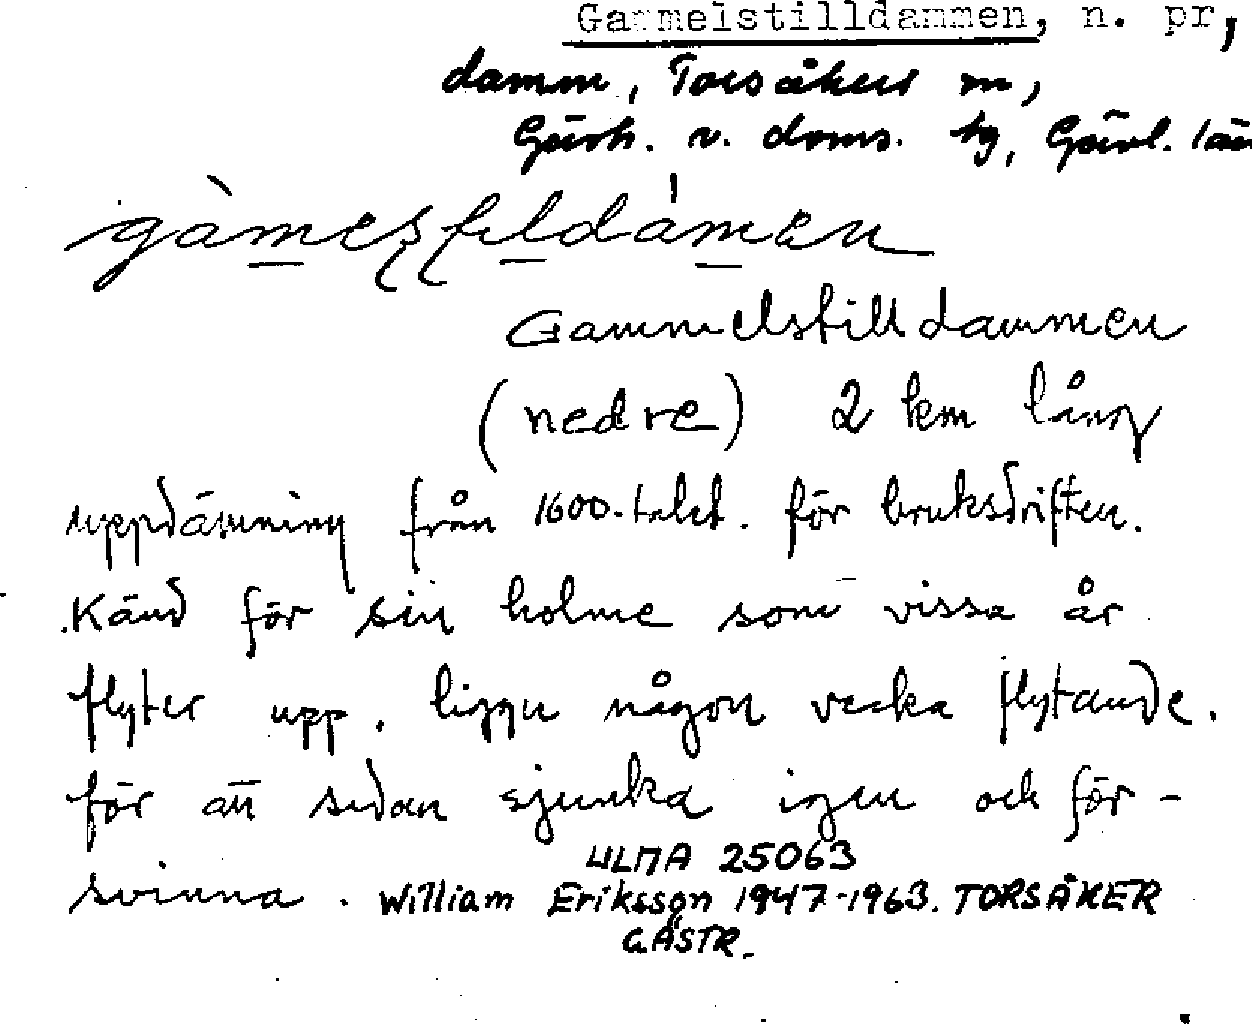 Gammelstilldammen, n. pr,
damm, Torsåkers sn,
Gästr. v. doms. tg, Gävl. län
Gammelstilldammen
(nedre) 2 km lång
uppdämning från 1600-talet. för bruksdriften.
Känd för sin holme som vissa år
flyter upp, ligger någon vecka flytande.
för att sedan sjunka igen och för-
svinna. ULMA 25063
William Eriksson 1947-1963. TORSÅKER
GÄSTR.